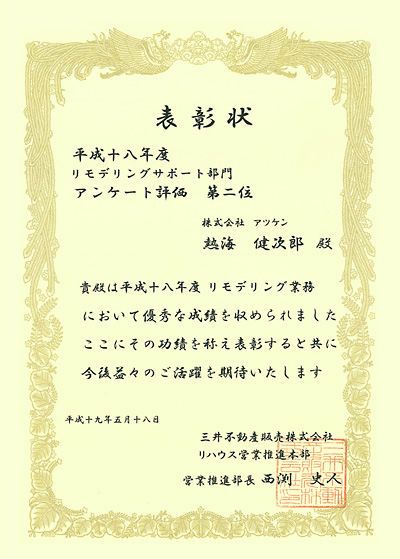 表彰状
平成十八年度
リモデリングサポート部門
アンケート評価 第二位
株式会社 アツケン
熱海 健次郎 殿
貴殿は平成十八年度 リモデリング業務
において優秀な成績を収められました
ここにその功績を称え表彰すると共に
今後益々のご活躍を期待いたします
平成十九年五月十八日
三井不動産販売株式会社
リハウス営業推進本部
営業推進部長 西渕 史人